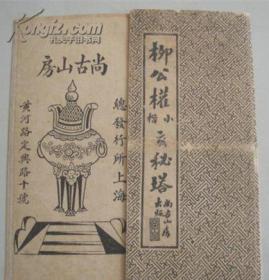 尚古山房
總發行所上海
黃河路定興路十號
柳公權小楷玄秘塔
尚古山房
出版